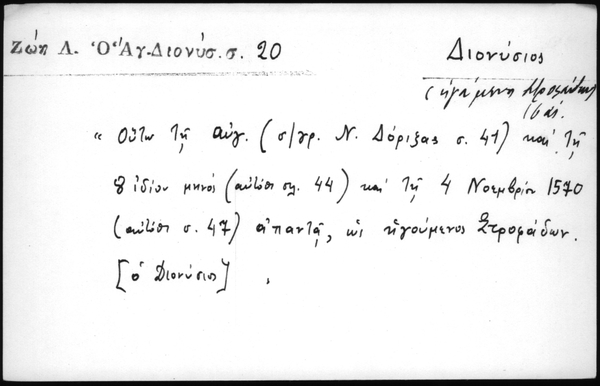 Ζώη Λ. Ὁ Ἅγ. Διονύσ. σ. 20
Διονύσιος
(ἡγούμενος Στροφάδων)
16 αἰ.
« Οὕτω τῇ αὐγ. (σ/γρ. Ν. Δόριζας σ. 41) καὶ τῇ
8 ἰδίου μηνός (αὐτόθι σελ. 44) καὶ τῇ 4 Νοεμβρίου 1570
(αὐτόθι σ. 47) ἀπαντᾷ, ὡς ἡγούμενος Στροφάδων.
[ὁ Διονύσιος] .